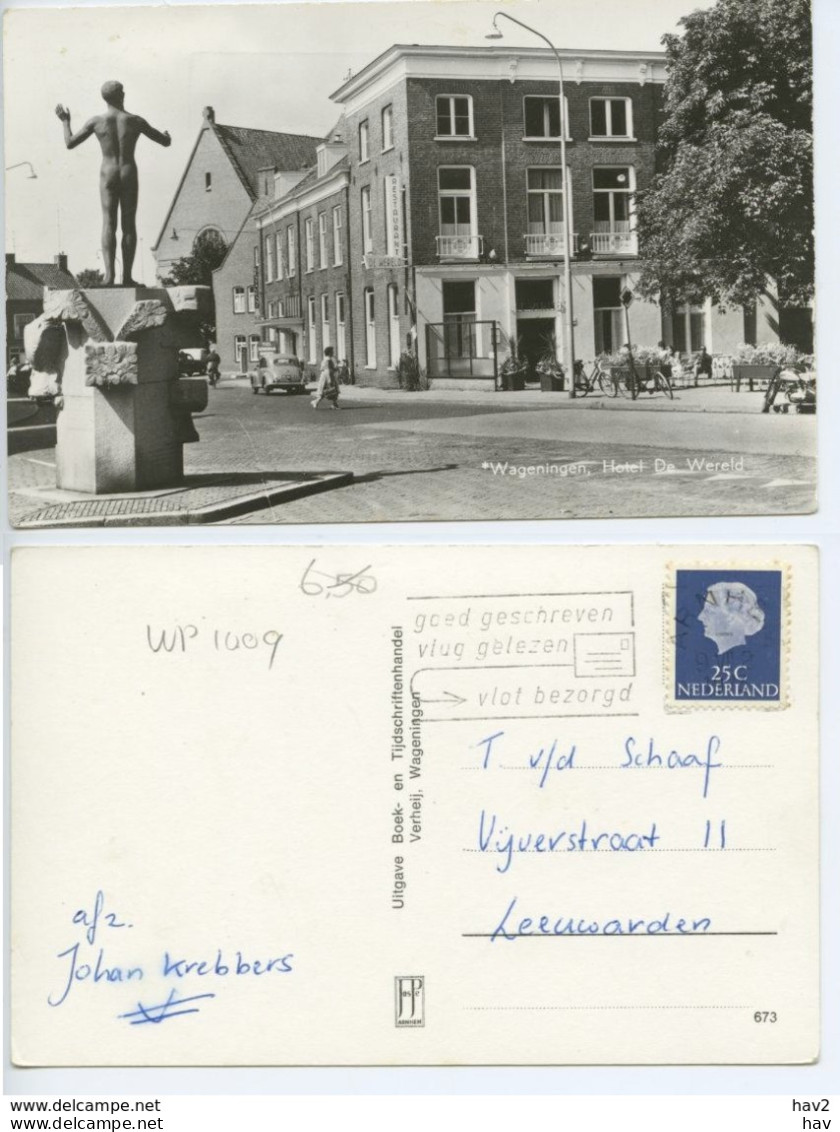 RESTAURANT
DE WERELD
*Wageningen, Hotel De Wereld
6,50
WP 1009
goed geschreven
vlug gelezen
vlot bezorgd
ARNHE
25C
NEDERLAND
Uitgave Boek- en Tijdschriftenhandel
Verheij, Wageningen
T v/d Schaaf
Vijverstraat 11
Leeuwarden
afz.
Johan Krebbers
JosPé
ARNHEM
673
hav2
www.delcampe.net
hav